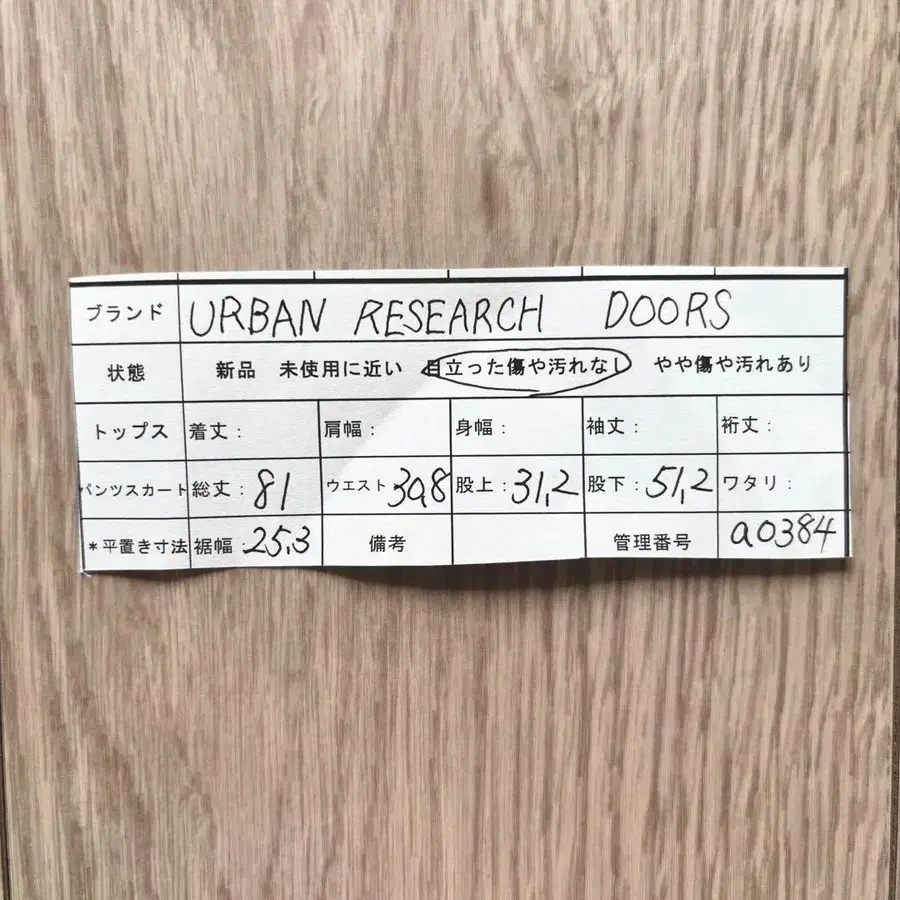 ブランド URBAN RESEARCH DOORS
状態 新品 未使用に近い 目立った傷や汚れなし やや傷や汚れあり
トップス 着丈: 肩幅: 身幅: 袖丈: 裄丈:
パンツスカート 総丈: 81 ウエスト 30,8 股上: 31,2 股下: 51,2 ワタリ:
*平置き寸法 裾幅: 25.3 備考 管理番号 a0384